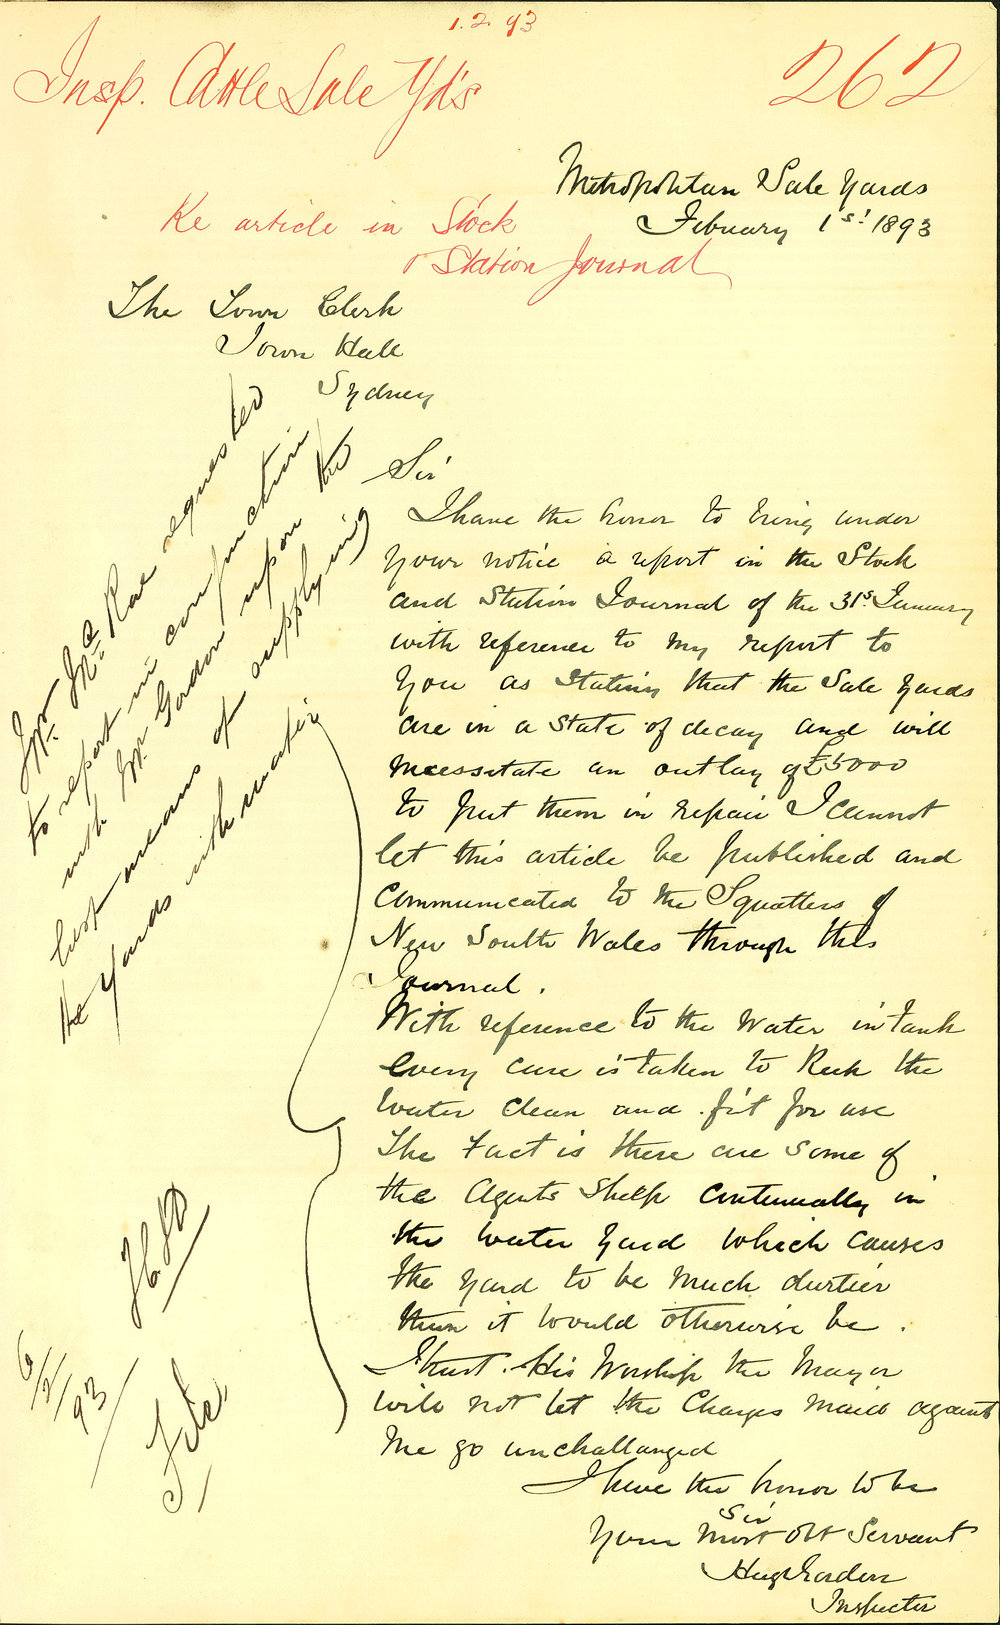 1.2.93
Insp. Cattle Sale Yd's
262
Metropolitan Sale Yards
Febuary 1st 1893
Re article in Stock
& Station Journal
The Town Clerk
Town Hall
Sydney
Sir
I have the honor to bring under
your notice a report in the Stock
and Station Journal of the 31st January
with reference to my report to
You as stating that the Sale Yards
are in a state of decay and will
necessitate an outlay of £5000
to put them in repair I cannot
let this article be published and
communicated to the Squatters of
New South Wales through this
Journal.
With reference to the water in tank
every care is taken to keek the
water clean and fit for use
The fact is there are some of
the Agents Sheep continually in
the water yard which causes
the yard to be much durtier
than it would otherwise be.
I trust His Worship the Mayor
will not let the Charges maid against
me go unchallanged
I have the honor to be
Sir
Your most obt Servant
Hugh Gordon
Inspector
Mr. McRae requested
to report in conjunction
with Mr Gordon upon the
best means of supplying
the Yards with water
6/2/93
File